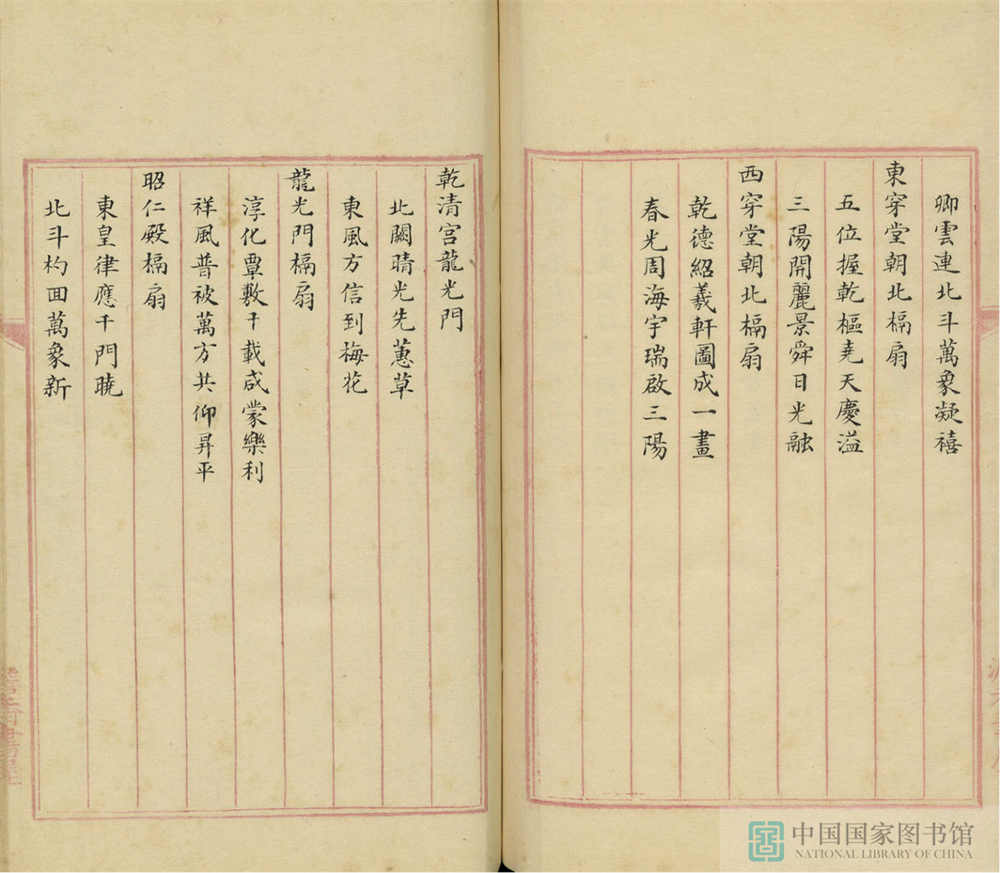 卿雲連北斗萬象凝禧
東穿堂朝北槅扇
五位握乾樞堯天慶溢
三陽開麗景舜日光融
西穿堂朝北槅扇
乾德紹羲軒圖成一畫
春光周海宇瑞啟三陽
乾清宮龍光門
北闕晴光先蕙草
東風方信到梅花
龍光門槅扇
淳化覃敷千載咸蒙樂利
祥風普被萬方共仰昇平
昭仁殿槅扇
東皇律應千門曉
北斗杓回萬象新
中国国家图书馆
NATIONAL LIBRARY OF CHINA